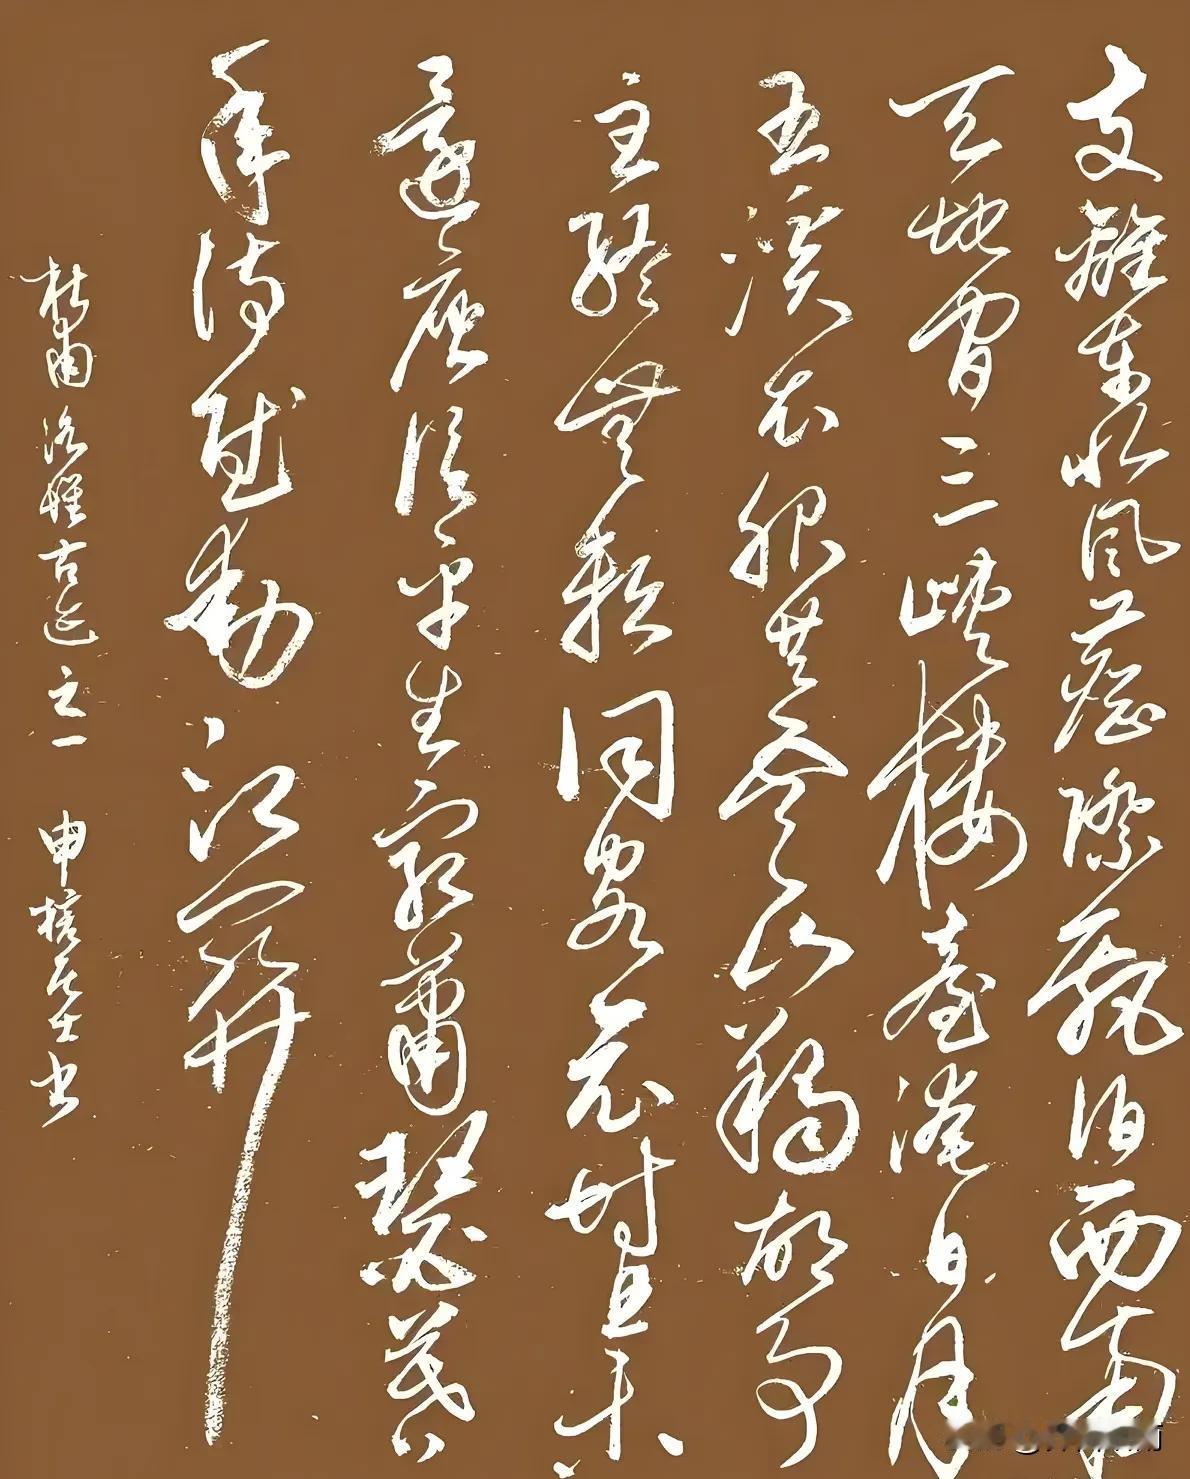 支離東北風塵際飄泊西南
天地間三峽樓臺淹日月
五溪衣服共雲山羯胡事
主終無賴詞客哀時且未
還庾信平生最蕭瑟暮
年詩賦動江關
杜甫詠懷古迹之一 申居士書